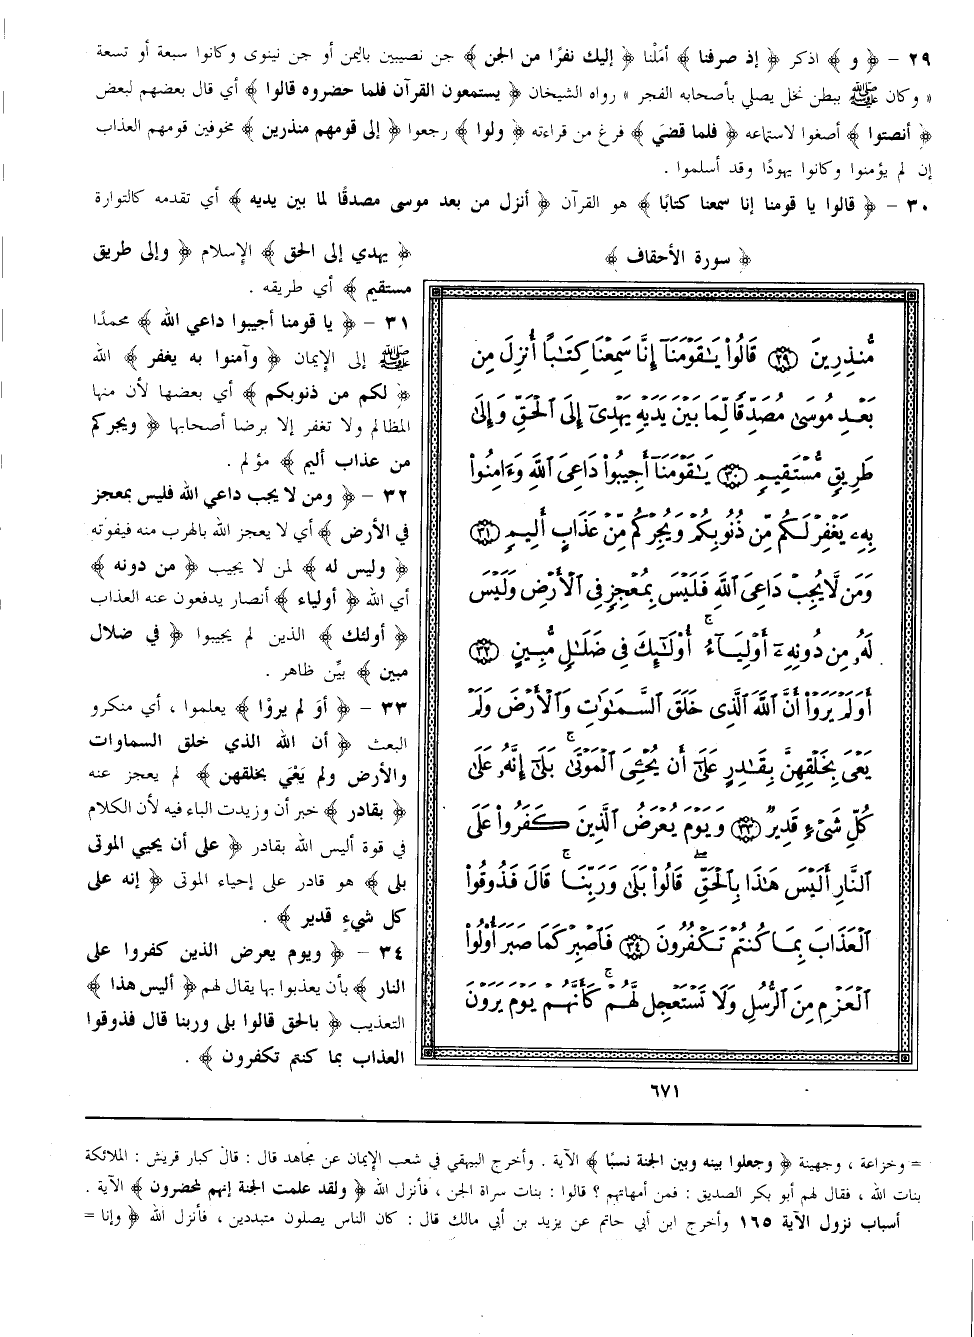 ٢٩ – ﴿ و ﴾ اذكر ﴿ إذ صرفنا ﴾ أملْنا ﴿ إليك نفرًا من الجن ﴾ جن نصيبين باليمن أو جن نينوى وكانوا سبعة أو تسعة
« وكان ﷺ ببطن نخل يصلي بأصحابه الفجر » رواه الشيخان ﴿ يستمعون القرآن فلما حضروه قالوا ﴾ أي قال بعضهم لبعض
﴿ أنصتوا ﴾ أصغوا لاستماعه ﴿ فلما قضيَ ﴾ فرغ من قراءته ﴿ ولوا ﴾ رجعوا ﴿ إلى قومهم منذرين ﴾ مخوفين قومهم العذاب
إن لم يؤمنوا وكانوا يهودًا وقد أسلموا .
٣٠ – ﴿ قالوا يا قومنا إنا سمعنا كتابًا ﴾ هو القرآن ﴿ أنزل من بعد موسى مصدقًا لما بين يديه ﴾ أي تقدمه كالتوارة
﴿ سورة الأحقاف ﴾
مُّنذِرِينَ ۝٢٩ قَالُوا۟ يَـٰقَوْمَنَآ إِنَّا سَمِعْنَا كِتَـٰبًا أُنزِلَ مِنۢ
بَعْدِ مُوسَىٰ مُصَدِّقًا لِّمَا بَيْنَ يَدَيْهِ يَهْدِىٓ إِلَى ٱلْحَقِّ وَإِلَىٰ
طَرِيقٍ مُّسْتَقِيمٍ ۝٣٠ يَـٰقَوْمَنَآ أَجِيبُوا۟ دَاعِىَ ٱللَّهِ وَءَامِنُوا۟
بِهِۦ يَغْفِرْ لَكُم مِّن ذُنُوبِكُمْ وَيُجِرْكُم مِّنْ عَذَابٍ أَلِيمٍ ۝٣١
وَمَن لَّا يُجِبْ دَاعِىَ ٱللَّهِ فَلَيْسَ بِمُعْجِزٍ فِى ٱلْأَرْضِ وَلَيْسَ
لَهُۥ مِن دُونِهِۦٓ أَوْلِيَآءُ ۚ أُو۟لَـٰٓئِكَ فِى ضَلَـٰلٍ مُّبِينٍ ۝٣٢
أَوَلَمْ يَرَوْا۟ أَنَّ ٱللَّهَ ٱلَّذِى خَلَقَ ٱلسَّمَـٰوَٰتِ وَٱلْأَرْضَ وَلَمْ
يَعْىَ بِخَلْقِهِنَّ بِقَـٰدِرٍ عَلَىٰٓ أَن يُحْـِۧىَ ٱلْمَوْتَىٰ ۚ بَلَىٰٓ إِنَّهُۥ عَلَىٰ
كُلِّ شَىْءٍ قَدِيرٌ ۝٣٣ وَيَوْمَ يُعْرَضُ ٱلَّذِينَ كَفَرُوا۟ عَلَى
ٱلنَّارِ أَلَيْسَ هَـٰذَا بِٱلْحَقِّ ۖ قَالُوا۟ بَلَىٰ وَرَبِّنَا ۚ قَالَ فَذُوقُوا۟
ٱلْعَذَابَ بِمَا كُنتُمْ تَكْفُرُونَ ۝٣٤ فَٱصْبِرْ كَمَا صَبَرَ أُو۟لُوا۟
ٱلْعَزْمِ مِنَ ٱلرُّسُلِ وَلَا تَسْتَعْجِل لَّهُمْ ۚ كَأَنَّهُمْ يَوْمَ يَرَوْنَ
٦٧١
﴿ يهدي إلى الحق ﴾ الإسلام ﴿ وإلى طريق
مستقيم ﴾ أي طريقه .
٣١ – ﴿ يا قومنا أجيبوا داعي الله ﴾ محمدًا
ﷺ إلى الإيمان ﴿ وآمنوا به يغفر ﴾ الله
﴿ لكم من ذنوبكم ﴾ أي بعضها لأن منها
المظالم ولا تغفر إلا برضا أصحابها ﴿ ويجركم
من عذاب أليم ﴾ مؤلم .
٣٢ – ﴿ ومن لا يجب داعي الله فليس بمعجز
في الأرض ﴾ أي لا يعجز الله بالهرب منه فيفوته
﴿ وليس له ﴾ لمن لا يجيب ﴿ من دونه ﴾
أي الله ﴿ أولياء ﴾ أنصار يدفعون عنه العذاب
﴿ أولئك ﴾ الذين لم يجيبوا ﴿ في ضلال
مبين ﴾ بيِّن ظاهر .
٣٣ – ﴿ أوَ لم يروْا ﴾ يعلموا ، أي منكرو
البعث ﴿ أن الله الذي خلق السماوات
والأرض ولم يَعْيَ بخلقهن ﴾ لم يعجز عنه
﴿ بقادر ﴾ خبر أن وزيدت الباء فيه لأن الكلام
في قوة أليس الله بقادر ﴿ على أن يحيي الموتى
بلى ﴾ هو قادر على إحياء الموتى ﴿ إنه على
كل شيءٍ قدير ﴾ .
٣٤ – ﴿ ويوم يعرض الذين كفروا على
النار ﴾ بأن يعذبوا بها يقال لهم ﴿ أليس هذا ﴾
التعذيب ﴿ بالحق قالوا بلى وربنا قال فذوقوا
العذاب بما كنتم تكفرون ﴾ .
= وخزاعة ، وجهينة ﴿ وجعلوا بينه وبين الجنة نسبًا ﴾ الآية . وأخرج البيهقي في شعب الإيمان عن مجاهد قال : قال كبار قريش : الملائكة
بنات الله ، فقال لهم أبو بكر الصديق : فمن أمهاتهم ؟ قالوا : بنات سراة الجن ، فأنزل الله ﴿ ولقد علمت الجنة إنهم لمحضرون ﴾ الآية .
أسباب نزول الآية ١٦٥ وأخرج ابن أبي حاتم عن يزيد بن أبي مالك قال : كان الناس يصلون متبددين ، فأنزل الله ﴿ وإنا =